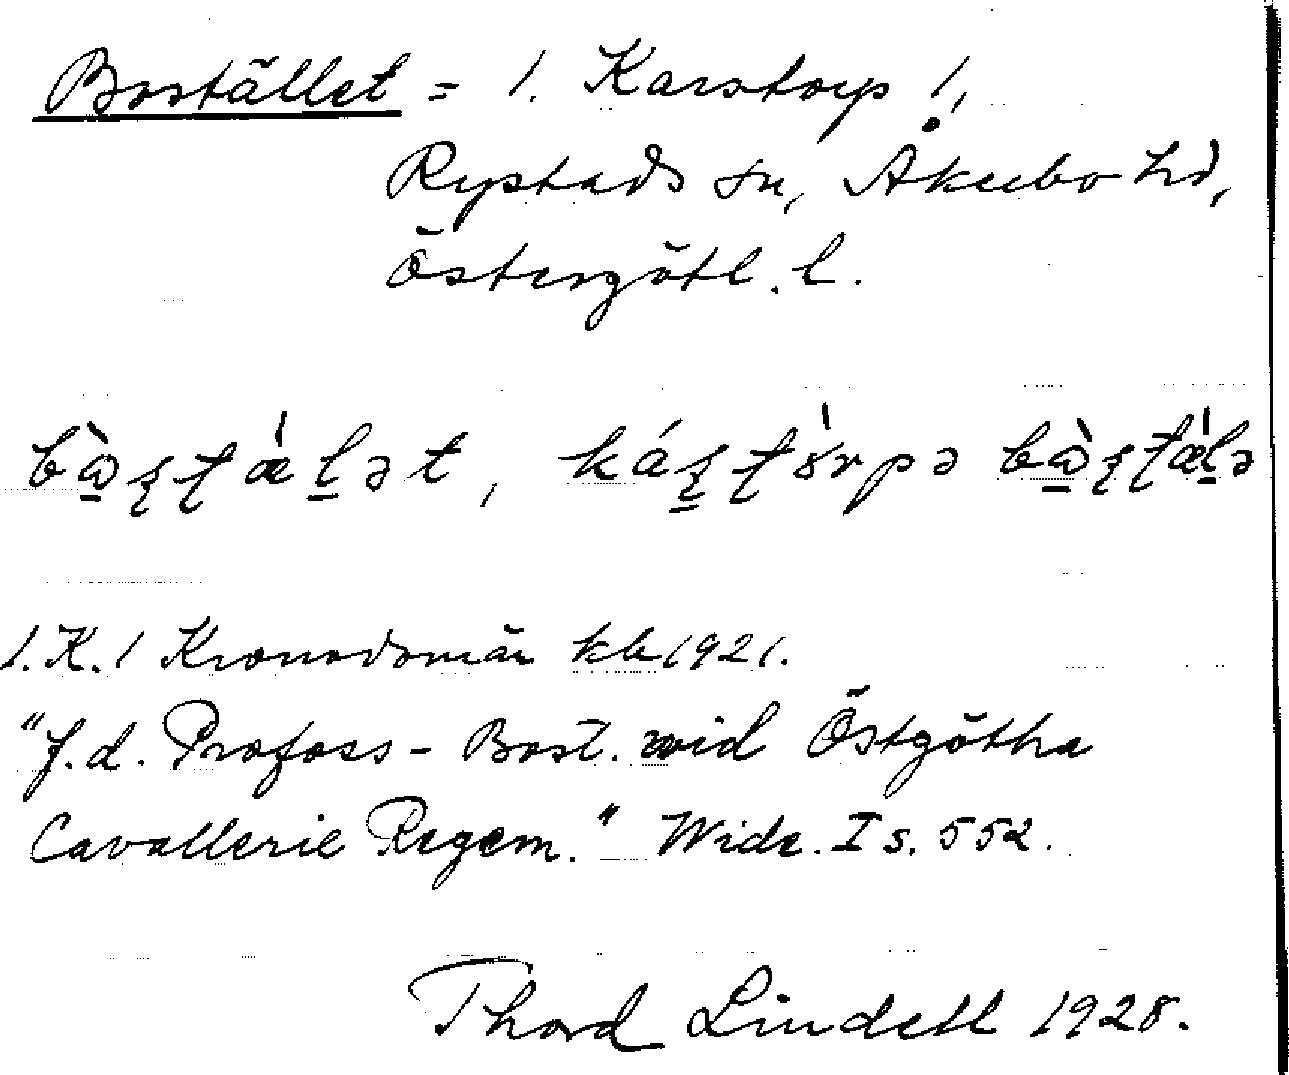 Bostället = 1. Karstorp !,
Rystads sn, Åkerbo hd,
Östergötl. l.
1. K. 1 Kronodomän kb 1921.
"f.d. Profoss - Bost. wid Östgötha
Cavallerie Regem." Wide. I s. 552.
Thord Lindell 1928.